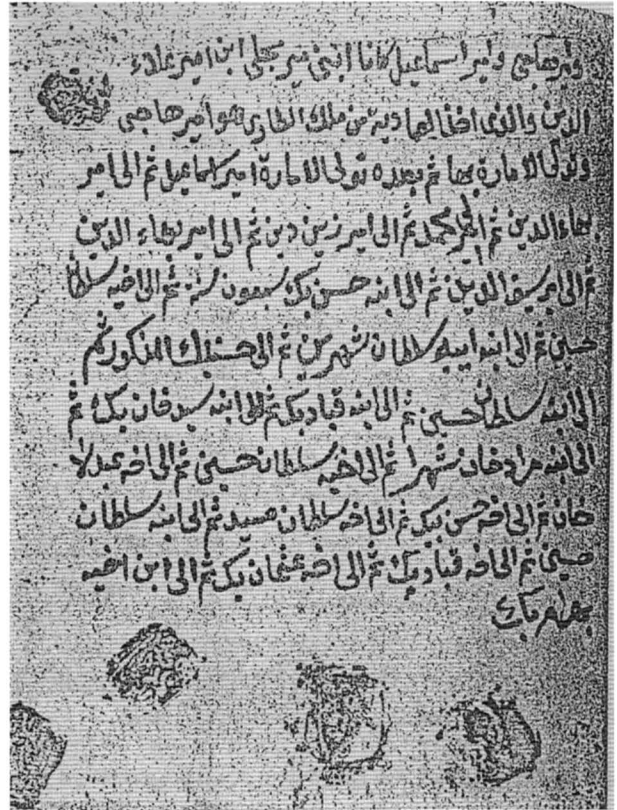 وامير حاجي وامير اسماعيل كانا ابني مير مجلي ابن امير علاء
الدين والذي اخذ العمادية من ملك الطاري هو امير حاجي
وتولى الامارة بها ثم بعده تولى الامارة امير اسماعيل ثم الى امير
بهاء الدين ثم امير محمد ثم الى امير زين دين ثم الى امير بهاء الدين
ثم الى امير سيف الدين ثم الى ابنه حسن بك سبعون سنة ثم الى اخيه سلطان
حسين ثم الى ابنه سلطان شهرين ثم الى حسنبك المذكور ثم
الى ابنه سلطان حسين ثم الى ابنه قباد بك ثم الى ابنه سيد خان بك ثم
الى ابنه مراد خان شهرا ثم الى اخيه سلطان حسين ثم الى اخه عبدلا
خان ثم الى اخه حسن بيك ثم الى اخه سلطان سيد ثم الى ابنه سلطان
حسين ثم الى اخه قباد بيك ثم الى اخه عثمان بك ثم الى ابن اخيه
بهرام بك